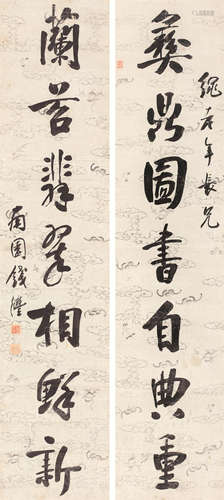 老年長兄
彝鼎圖書自典重
蘭苕翡翠相鮮新
南園錢灃